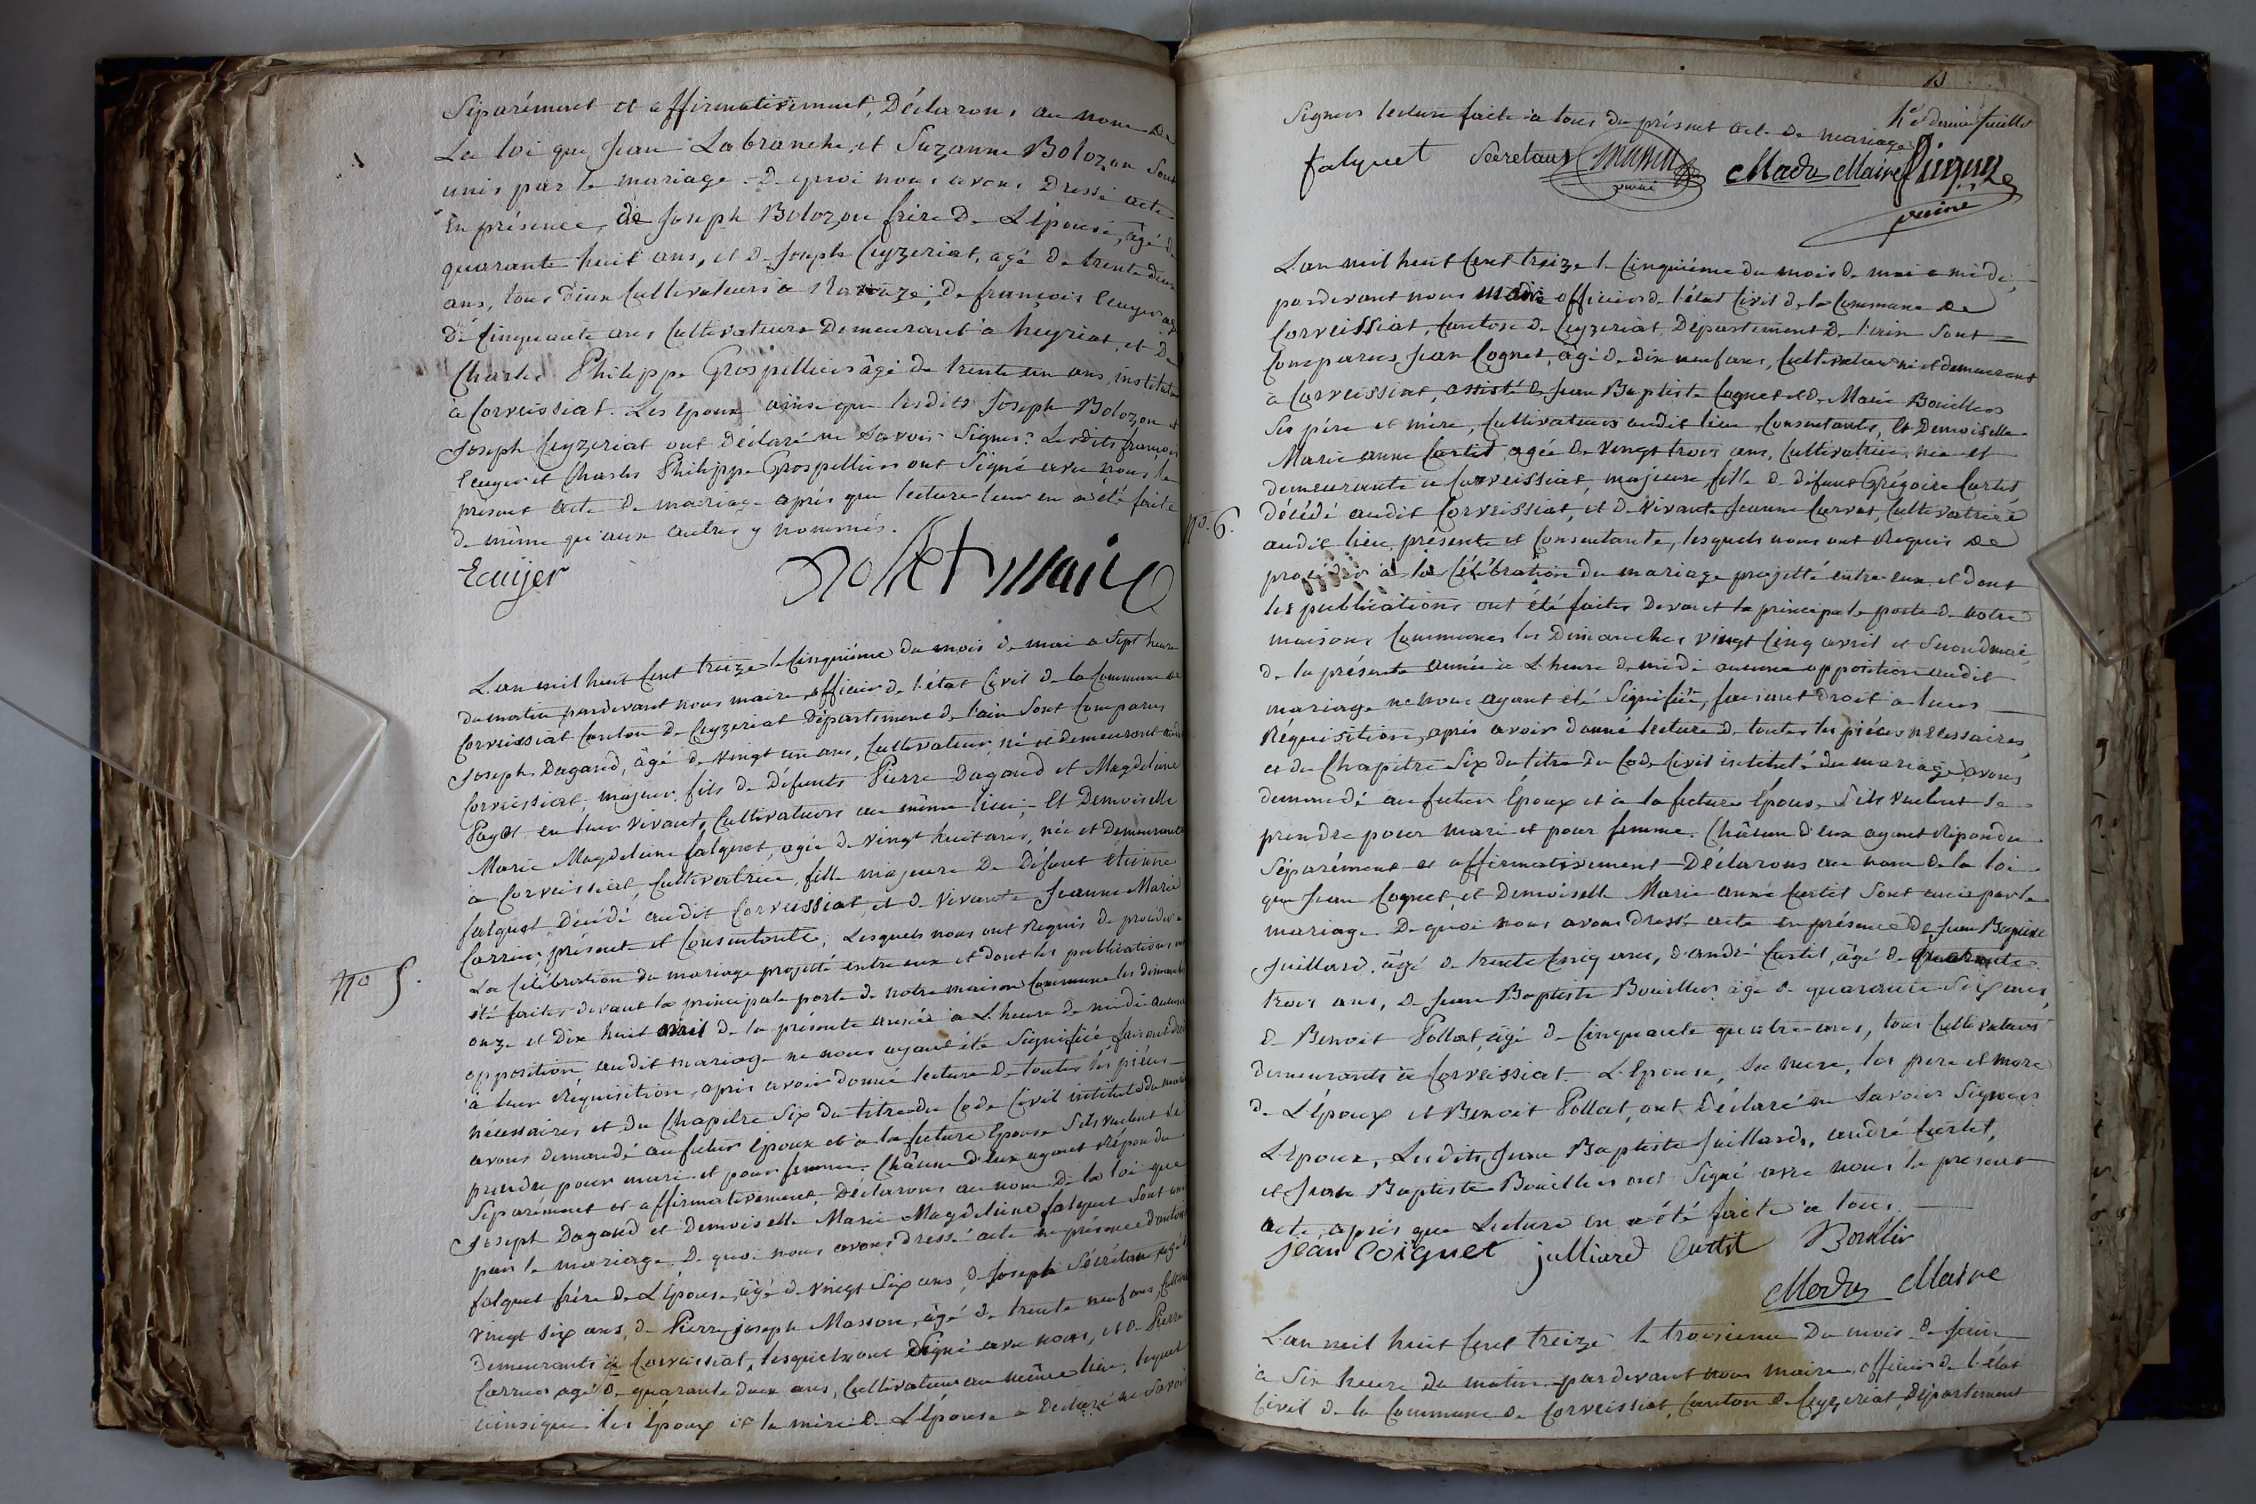 Séparément et affirmativement, Déclarons au nom de
La loi que Jean Labranche, et Suzanne Bolozon sont
unis par le mariage. De quoi nous avons Dressé acte
En présence, de Joseph Bolozon frère de L'épouse, âgé de
quarante huit ans, et de Joseph Ceyzeriat, agé de trente deux
ans, tous deux Cultivateurs a de françois Ecuyer agé
De Cinquante ans Cultivateur Demeurant à heyriat, et De
Charles Philippe Grospelliers âgé de trente un ans, instituteur
à Corveissiat. Les Epoux ainsi que lesdits Joseph Bolozon et
Joseph Ceyzeriat ont déclaré ne savoir Signer. Lesdits françois
Ecuyer et Charles Philippe Grospelliers ont Signé avec nous le
present acte de mariage après que lecture leur en a été faite
de même qu'aux autres y nommés.
Ecuijer maire
L'an mil huit Cent treize le Cinquième du mois de mai a Sept heures
du matin pardevant nous maire officier de l'état Civil de la Commune de
Corveissiat Canton de Ceyzeriat Département de l'ain Sont Comparus
Joseph Dagand, âgé de vingt un ans, Cultivateur, né et demeurant audit
Corveissiat, majeur, fils de Défunts Pierre Dagand et Magdeleine
Payet en leur vivants Cultivateurs au même lieu; Et Demoiselle
Marie Magdeleine falquet, agée de vingt huit ans, née et Demeurante
a Corveissiat, Cultivatrice, fille majeure De Défunt étienne
falquet Décédé audit Corveissiat, et de vivante Jeanne Marie
Carrier, présente et Consentante; Lesquels nous ont Requis de procéder a
La Célébration du mariage projetté entre eux et dont les publications ont
N° 5.
été faites devant la principale porte de notre maison Commune les dimanches
onze et Dix huit avril de la présente année a L'heure de midi aucune
opposition audit mariage ne nous ayant été Signifiée, faisant droit
à leur Réquisition, après avoir donné lecture de toutes les pièces
nécessaires et du Chapitre Six du titre du Code Civil intitulé du mariage
avons demandé au futur époux et à la future Epouse S'ils veulent se
prendre pour mari et pour femme. Châcun d'eux ayant répondu
Séparément et affirmativement, Déclarons au nom de la loi que
Joseph Dagand et Demoiselle Marie Magdeleine falquet Sont unis
par le mariage. De quoi nous avons dressé acte en présence d'antoine
falquet frère de L'épouse, âgé de vingt Six ans, de Joseph Sécrétan agé de
vingt six ans, de Pierre joseph Masson, âgé de trente neuf ans,
Demeurants à Corveissiat, lesquels ont Signé avec nous, et de Pierre
Carrier agé de quarante deux ans, Cultivateur au même lieu, lequel
ainsi que les Epoux et la mère de L'épouse a Déclaré ne Savoir
13
Signer lecture faite à tous du présent acte de mariage
falquet Secretant Madre Maire
L'an mil huit Cent treize le Cinquième du mois de mai a midi,
pardevant nous maire officier de l'état Civil de la Commune de
Corveissiat, Canton de Ceyzeriat, Département de l'ain Sont
Comparus Jean Cognet, âgé de dix neuf ans, Cultivateur né et demeurant
à Corveissiat, assisté de Jean Baptiste Cognet et de Marie Bouillier
Ses père et mère, Cultivateurs audit lieu, Consentants, Et Demoiselle
Marie anne Curtet agée de vingt trois ans, Cultivatrice, née et
demeurante a Corveissiat, majeure fille de défunt Grégoire Curtet,
décédé audit Corveissiat, et de vivante Jeanne Curvat, Cultivatrice
N°. 6.
audit lieu, présente et Consentante, lesquels nous ont Requis de
procéder à la Célébration du mariage projetté entre eux et dont
les publications ont été faites Devant la principale porte de notre
maison Commune les Dimanches vingt Cinq avril et Second mai,
de la présente année a L'heure de midi aucune opposition audit
mariage ne nous ayant été Signifiée, faisant droit a leur
Réquisition, après avoir donné lecture de toutes les pièces nécessaires,
et du Chapitre Six du titre du Code Civil intitulé du mariage, avons
demandé au futur Epoux et à la future Epouse S'ils veulent se
prendre pour mari et pour femme. Châcun d'eux ayant répondu
Séparément et affirmativement Déclarons au nom de la loi
que Jean Cognet, et Demoiselle Marie anne Curtet Sont unis par le
mariage. De quoi nous avons dressé acte en présence De Jean Baptiste
Juillard, âgé de trente Cinq ans, d'andré Curtet, âgé de quarante
trois ans, de Jean Baptiste Bouillier âgé de quarante Six ans,
de Benoit Pollat, âgé de Cinquante quatre ans, tous Cultivateurs
demeurants à Corveissiat. L'Epouse, sa mère, les père et mère
de L'époux et Benoit Pollat, ont Déclaré ne Savoir Signer.
L'Epoux, Lesdits Jean Baptiste Juillard, andré Curtet,
et Jean Baptiste Bouillier ont Signé avec nous le present
acte, après que Lecture en a été faite à tous.
jean Coignet julliard Curtet Bouillir
Madre Maire
L'an mil huit Cent treize le troisieme Du mois de juin
à Six heure Du matin pardevant nous maire, officier de l'état
Civil de la Commune de Corveissiat, Canton de Ceyzeriat, Département